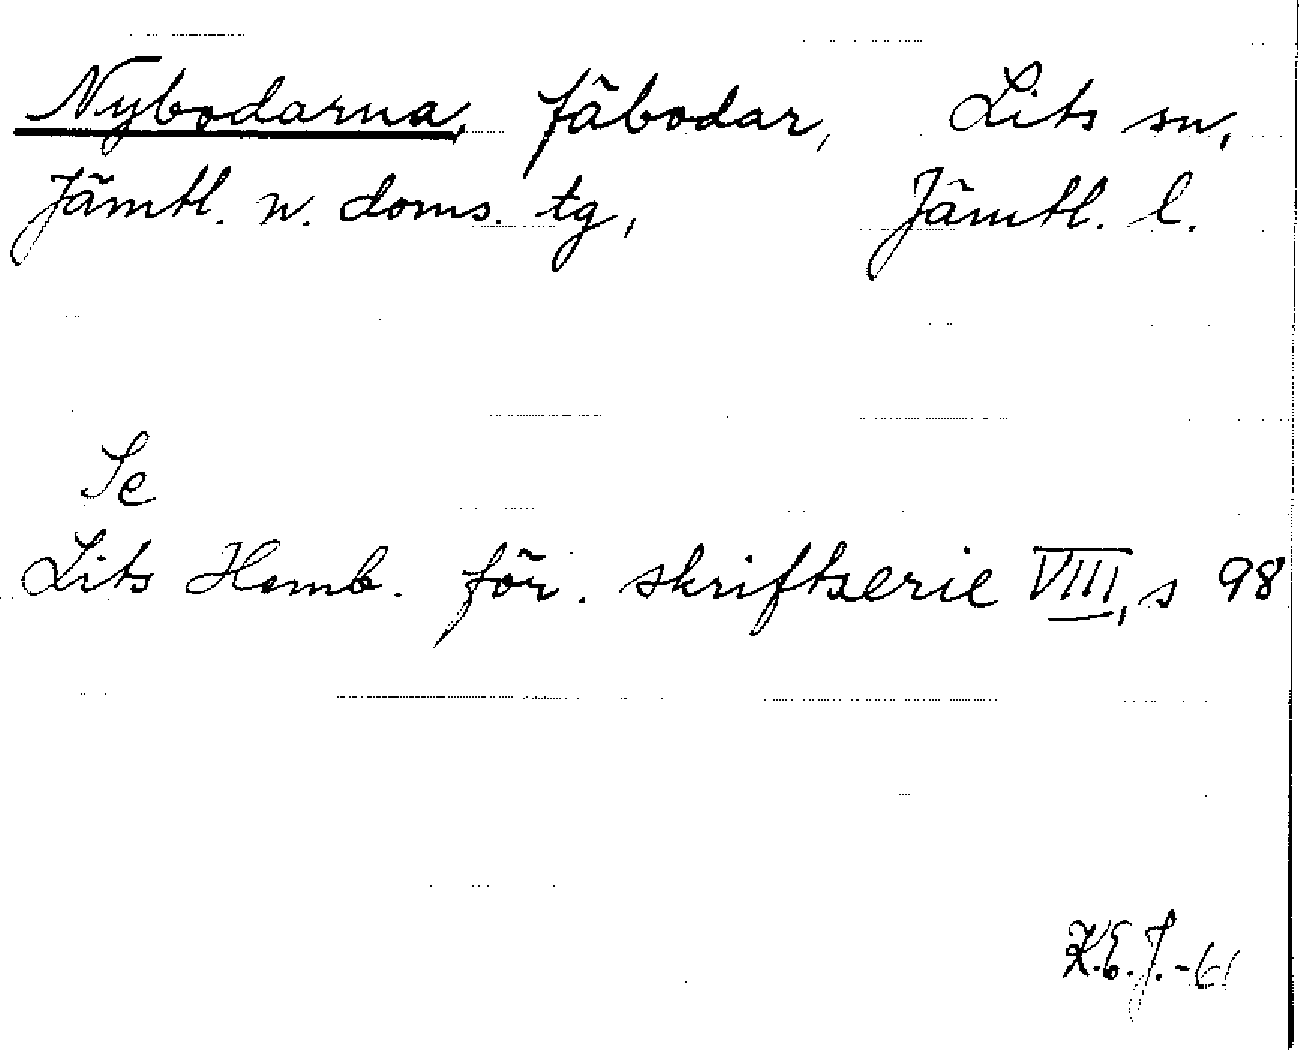 Nybodarna, fäbodar, Lits sn,
Jämtl. n. doms. tg, Jämtl. l.
Se
Lits Hemb. för. skriftserie VIII, s 98
K.E.J.-61